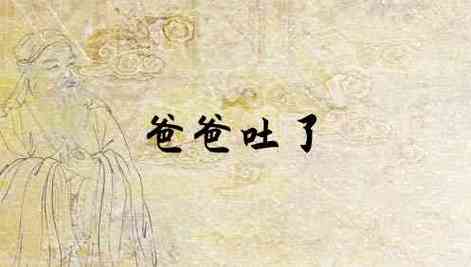 爸爸吐了